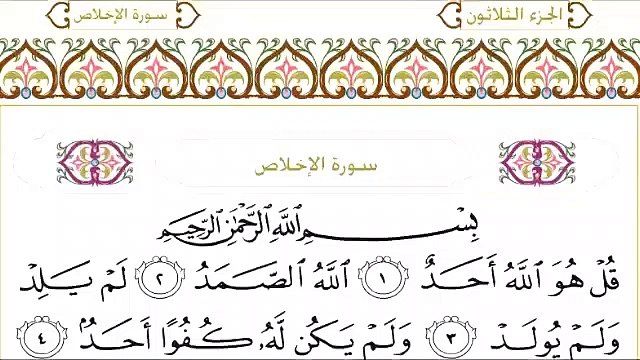 الجزء الثلاثون
سورة الإخلاص
سورة الإخلاص
بِسْمِ اللَّهِ الرَّحْمَٰنِ الرَّحِيمِ
قُلْ هُوَ اللَّهُ أَحَدٌ ١ اللَّهُ الصَّمَدُ ٢ لَمْ يَلِدْ
وَلَمْ يُولَدْ ٣ وَلَمْ يَكُن لَّهُۥ كُفُوًا أَحَدٌۢ ٤